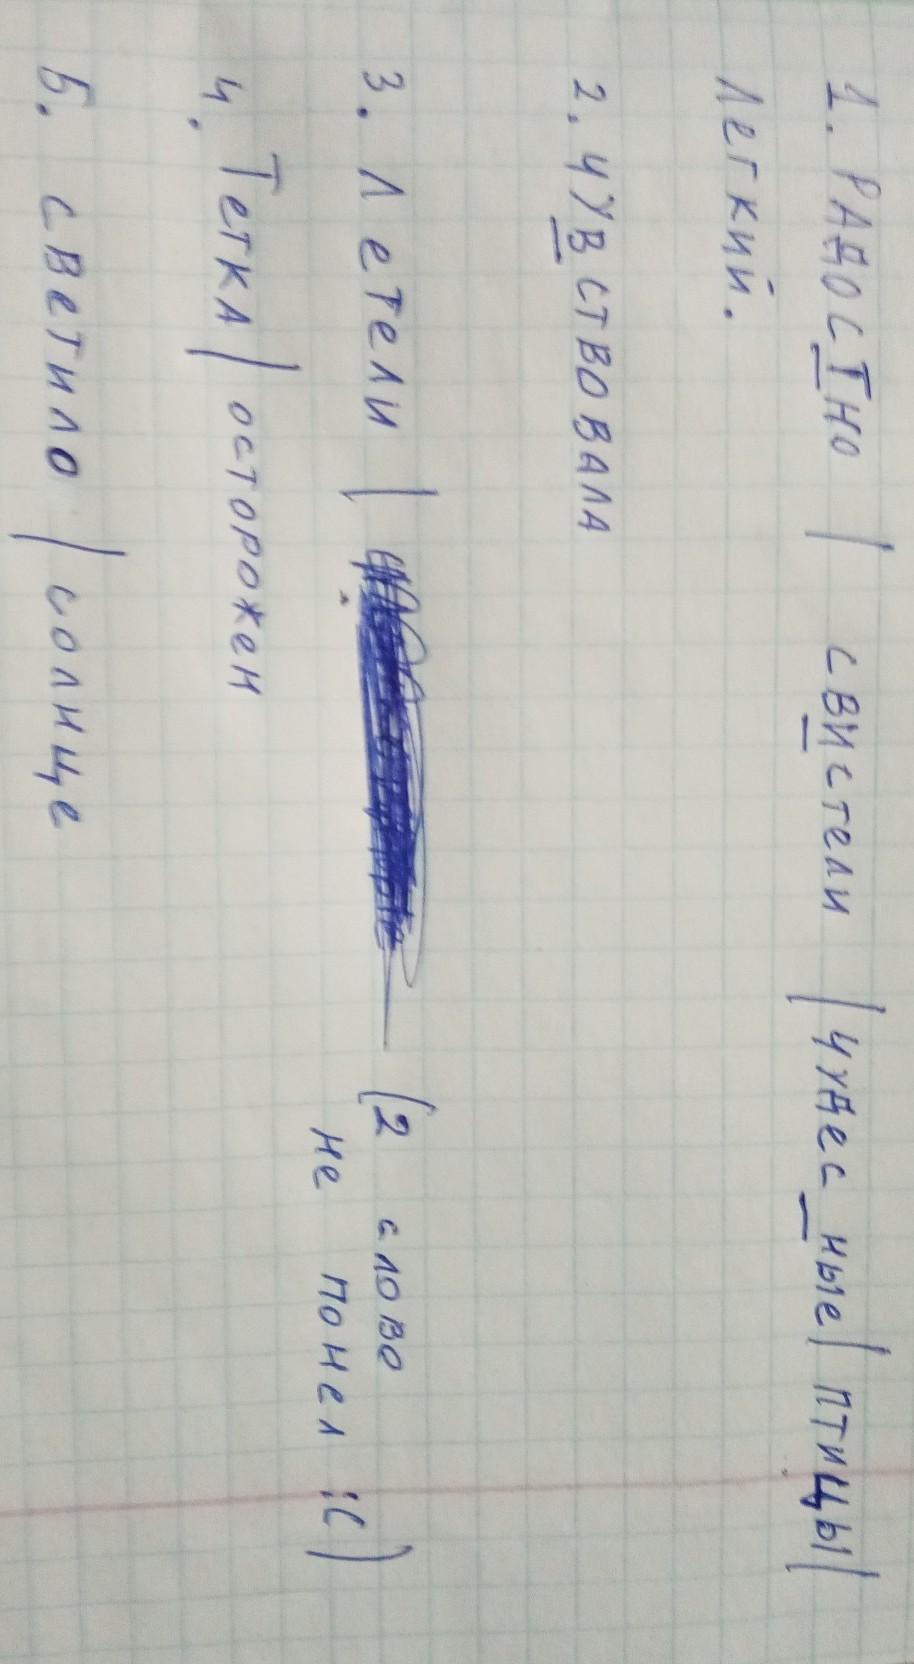 1. РАДОСТНО | СВИСТЕЛИ | ЧУДЕС_НЫЕ | ПТИЦЫ |
Легкий.
2. ЧУВСТВОВАЛА
3. Летели | (2 слово
не понел :()
4. Тетка | осторожен
5. светило | солнце